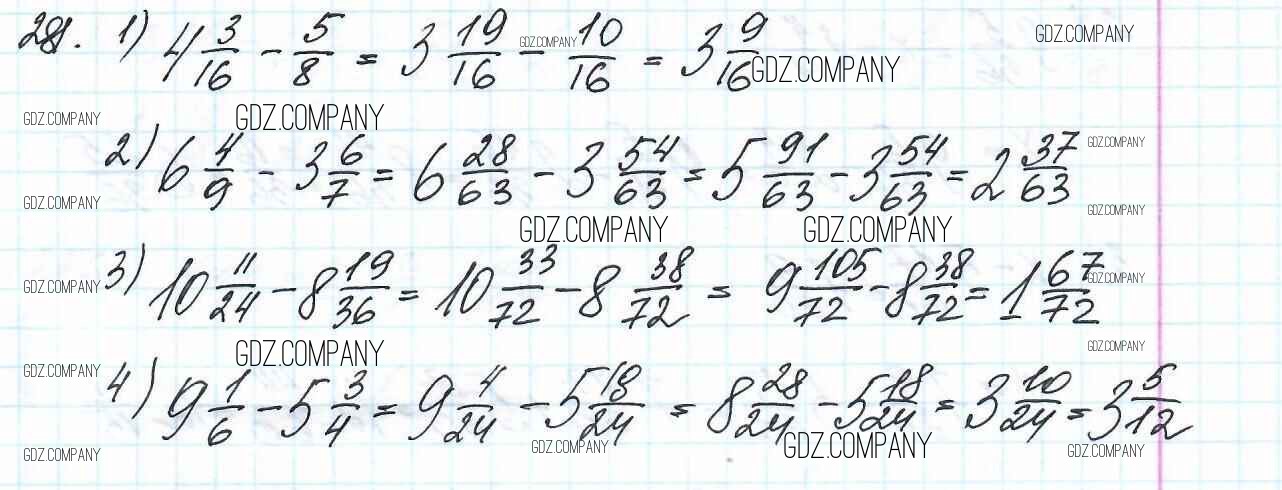 281. 1) 4 3/16 - 5/8 = 3 19/16 - 10/16 = 3 9/16
GDZ.COMPANY GDZ.COMPANY GDZ.COMPANY
GDZ.COMPANY GDZ.COMPANY
2) 6 4/9 - 3 6/7 = 6 28/63 - 3 54/63 = 5 91/63 - 3 54/63 = 2 37/63
GDZ.COMPANY
GDZ.COMPANY GDZ.COMPANY
GDZ.COMPANY GDZ.COMPANY
3) 10 11/24 - 8 19/36 = 10 33/72 - 8 38/72 = 9 105/72 - 8 38/72 = 1 67/72
GDZ.COMPANY GDZ.COMPANY
GDZ.COMPANY GDZ.COMPANY
4) 9 1/6 - 5 3/4 = 9 4/24 - 5 18/24 = 8 28/24 - 5 18/24 = 3 10/24 = 3 5/12
GDZ.COMPANY
GDZ.COMPANY GDZ.COMPANY GDZ.COMPANY GDZ.COMPANY